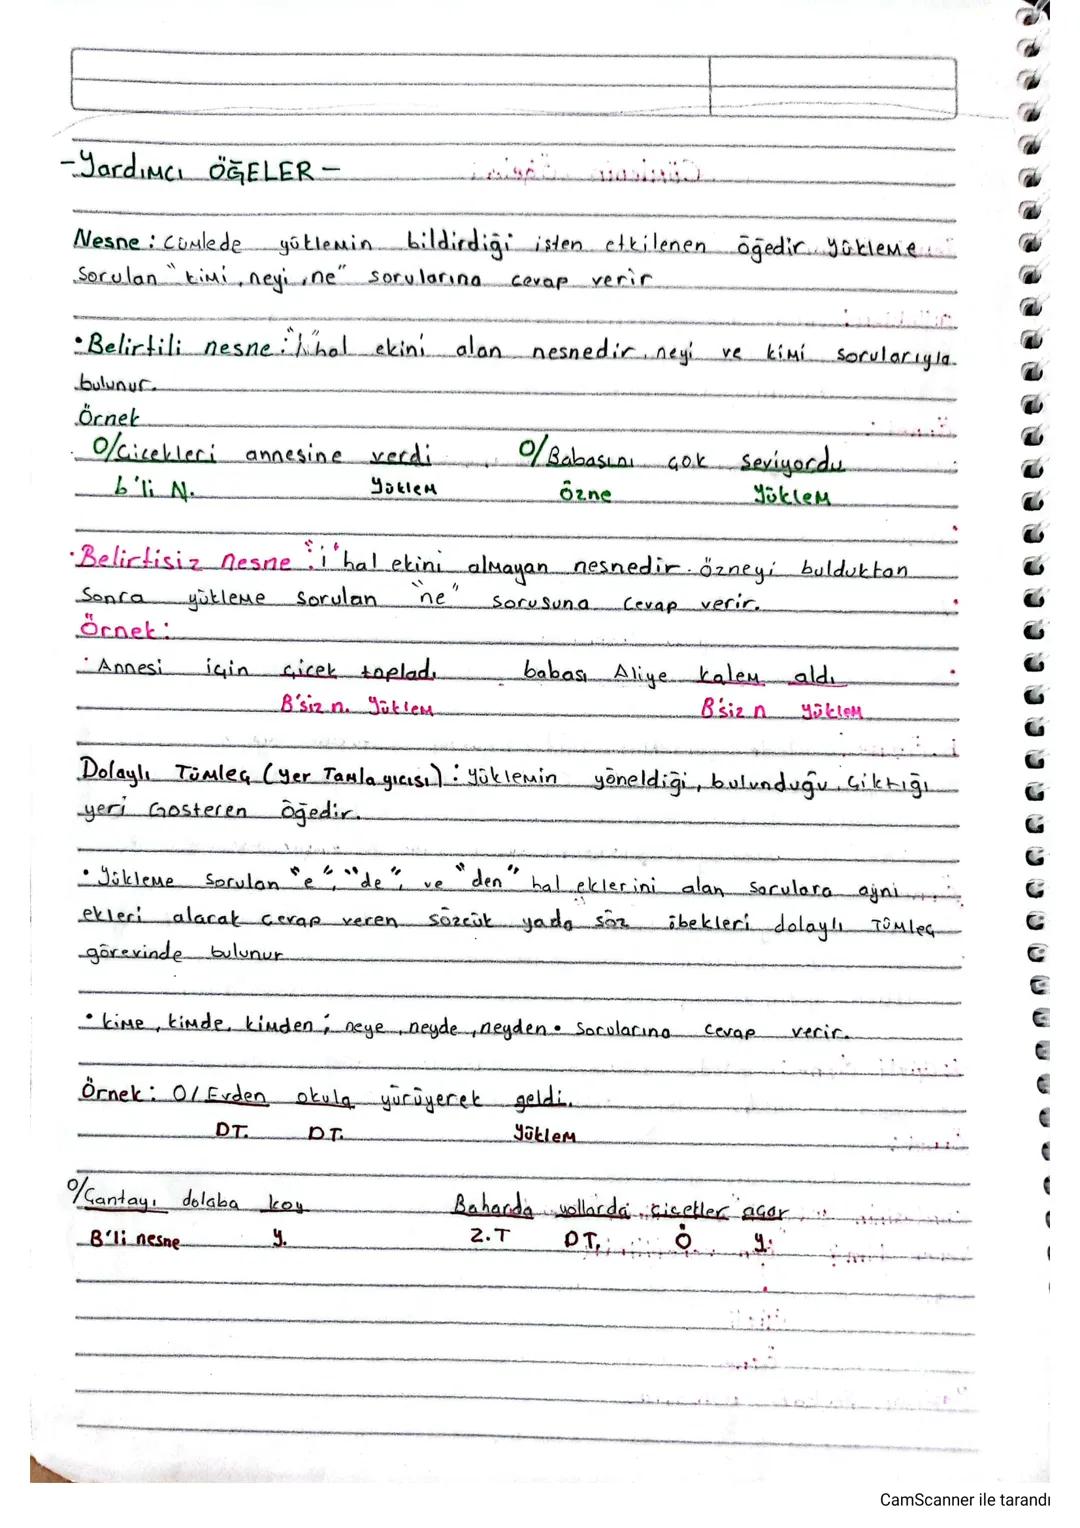 -Yardımcı ÖĞELER-
Nesne: Cümlede yüklemin bildirdiği işten etkilenen öğedir. Yükleme
Sorulan "kimi, neyi, ne" sorularına cevap verir
• Belirtili nesne: "i" hal ekini alan nesnedir. neyi ve kimi sorularıyla
bulunur.
Örnek
O/Çiçekleri annesine verdi O/Babasını çok seviyordu
b'li N. Yüklem Özne Yüklem
• Belirtisiz nesne: "i" hal ekini almayan nesnedir. özneyi bulduktan
Sonra yükleme sorulan "ne" sorusuna cevap verir.
Örnek:
• Annesi için çiçek topladı babası Aliye kalem aldı
B'siz n. Yüklem B'siz n Yüklem
Dolaylı Tümleç (Yer Tamlayıcısı): Yüklemin yöneldiği, bulunduğu, Çıktığı
yeri Gösteren öğedir.
• Yükleme Sorulan "e", "de", ve "den" hal eklerini alan Sorulara aynı
ekleri alarak cevap veren sözcük yada söz öbekleri dolaylı Tümleç
görevinde bulunur
• kime, kimde, kimden; neye, neyde, neyden. Sorularına cevap verir.
Örnek: O/ Evden okula yürüyerek geldi.
DT. DT. Yüklem
O/Çantayı dolaba koy Baharda yollarda çiçekler açar
B'li nesne y. Z.T DT. Ö y.
CamScanner ile tarandı